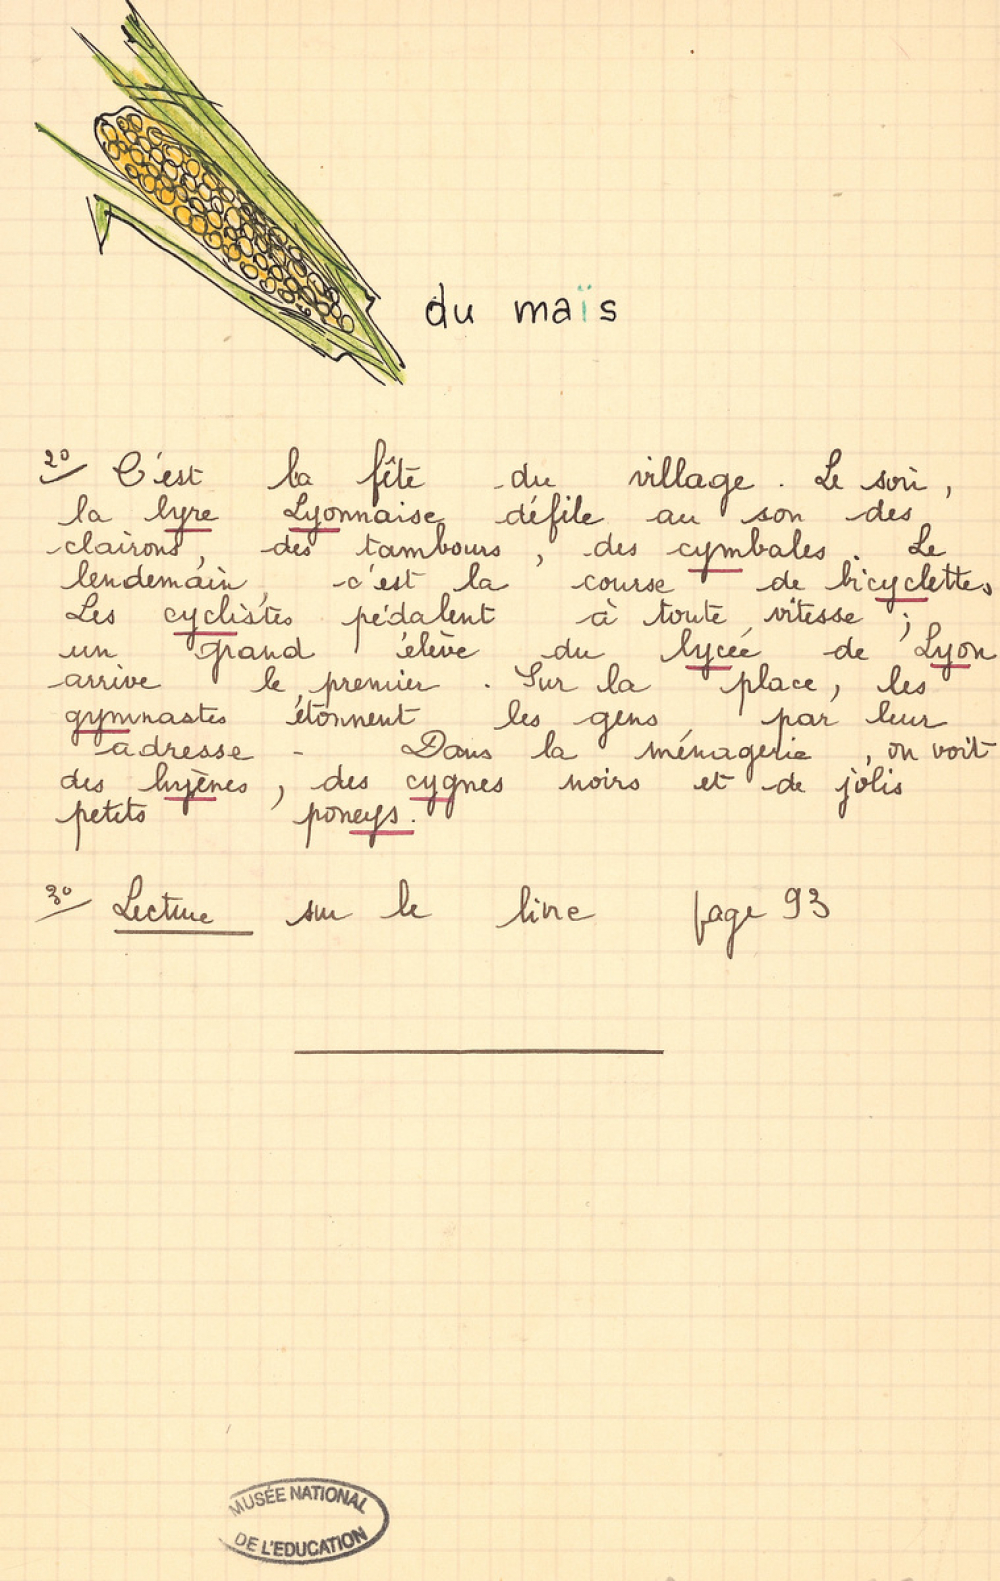 du maïs
2°/ C'est la fête du village. Le soir,
la lyre Lyonnaise défile au son des
clairons, des tambours, des cymbales. Le
lendemain, c'est la course de bicyclettes
Les cyclistes pédalent à toute vitesse ;
un grand élève du lycée de Lyon
arrive le premier. Sur la place, les
gymnastes étonnent les gens par leur
adresse - Dans la ménagerie, on voit
des hyènes, des cygnes noirs et de jolis
petits poneys.
3°/ Lecture sur le livre page 93
MUSÉE NATIONAL
DE L'EDUCATION